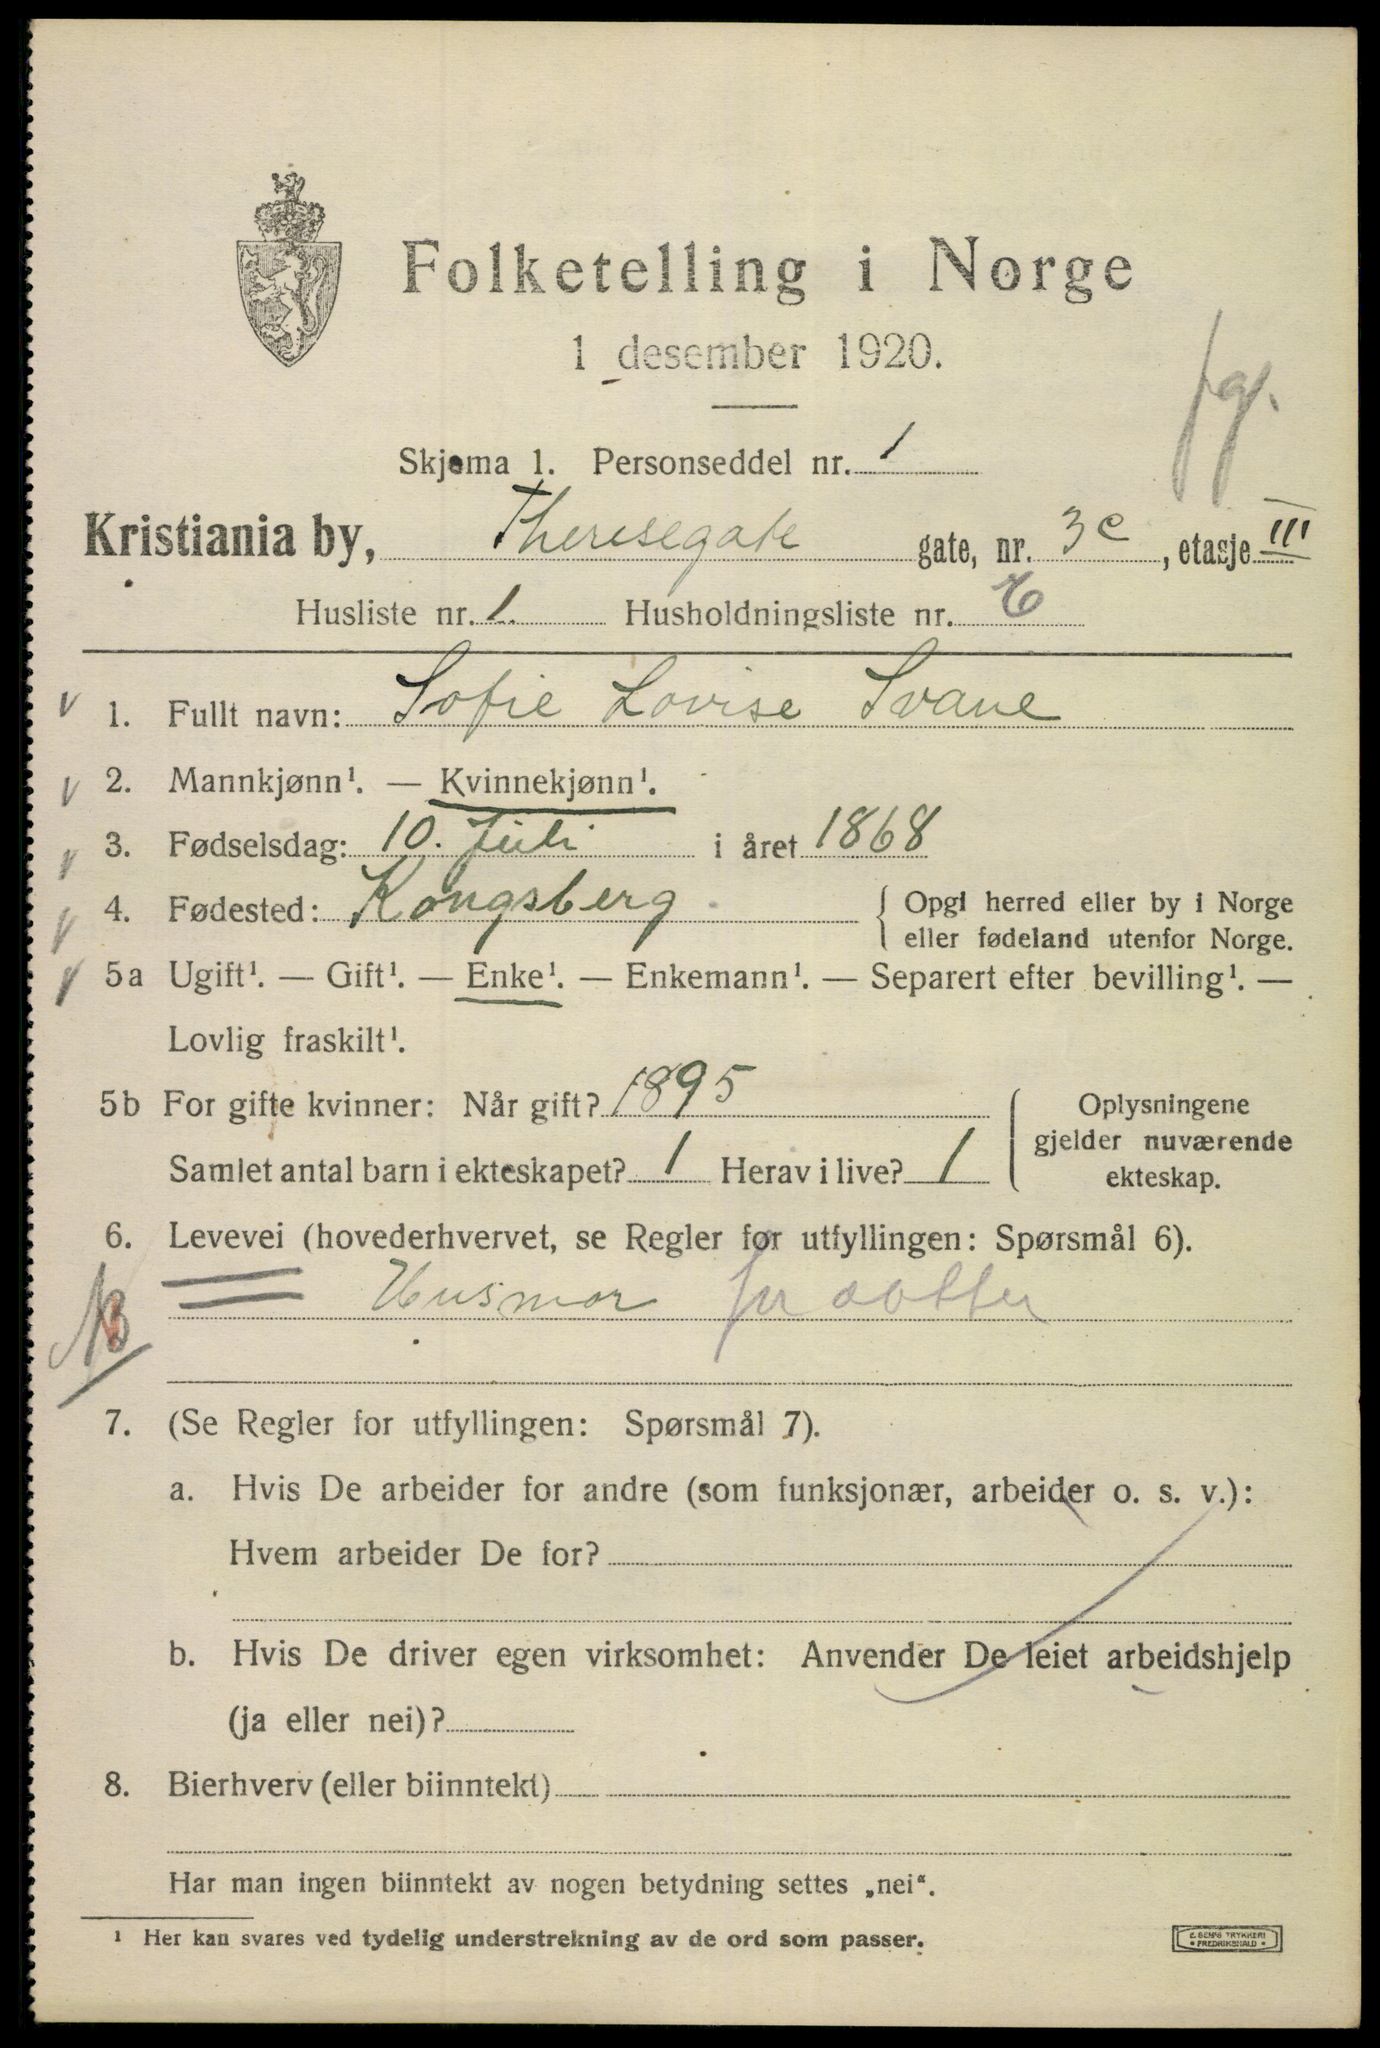 Folketelling i Norge
1 desember 1920.
Skjema 1. Personseddel nr. 1
Kristiania by, Theresegate gate, nr. 3c, etasje III
Husliste nr. 1. Husholdningsliste nr.
1. Fullt navn: Sofie Lovise Svane
2. Mannkjønn¹. — Kvinnekjønn¹.
3. Fødselsdag: 10. Juli i året 1868
4. Fødested: Kongsberg { Opgi herred eller by i Norge
eller fødeland utenfor Norge.
5a Ugift¹. — Gift¹. — Enke¹. — Enkemann¹. — Separert efter bevilling¹. —
Lovlig fraskilt¹.
5b For gifte kvinner: Når gift? 1895
Samlet antal barn i ekteskapet? 1 Herav i live? 1
Oplysningene
gjelder nuværende
ekteskap.
6. Levevei (hovederhvervet, se Regler for utfyllingen: Spørsmål 6).
Husmor for datter
NB
7. (Se Regler for utfyllingen: Spørsmål 7).
a. Hvis De arbeider for andre (som funksjonær, arbeider o. s. v.):
Hvem arbeider De for?
b. Hvis De driver egen virksomhet: Anvender De leiet arbeidshjelp
(ja eller nei)?
8. Bierhverv (eller biinntekt)
Har man ingen biinntekt av nogen betydning settes „nei“.
¹ Her kan svares ved tydelig understrekning av de ord som passer.
E. SEMS TRYKKERI
• FREDRIKSHALD •